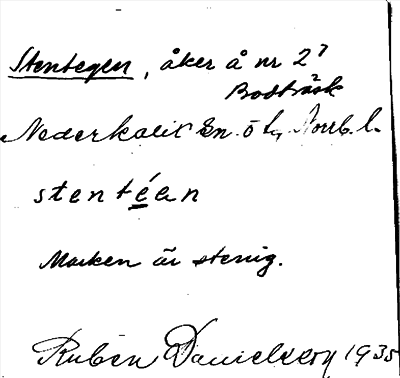 Stentegen, åker å nr 2⁷
Bodträsk
Nederkalix sn. ö Norrb. l.
stentéan
Marken är stenig.
Ruben Danielsson 1935